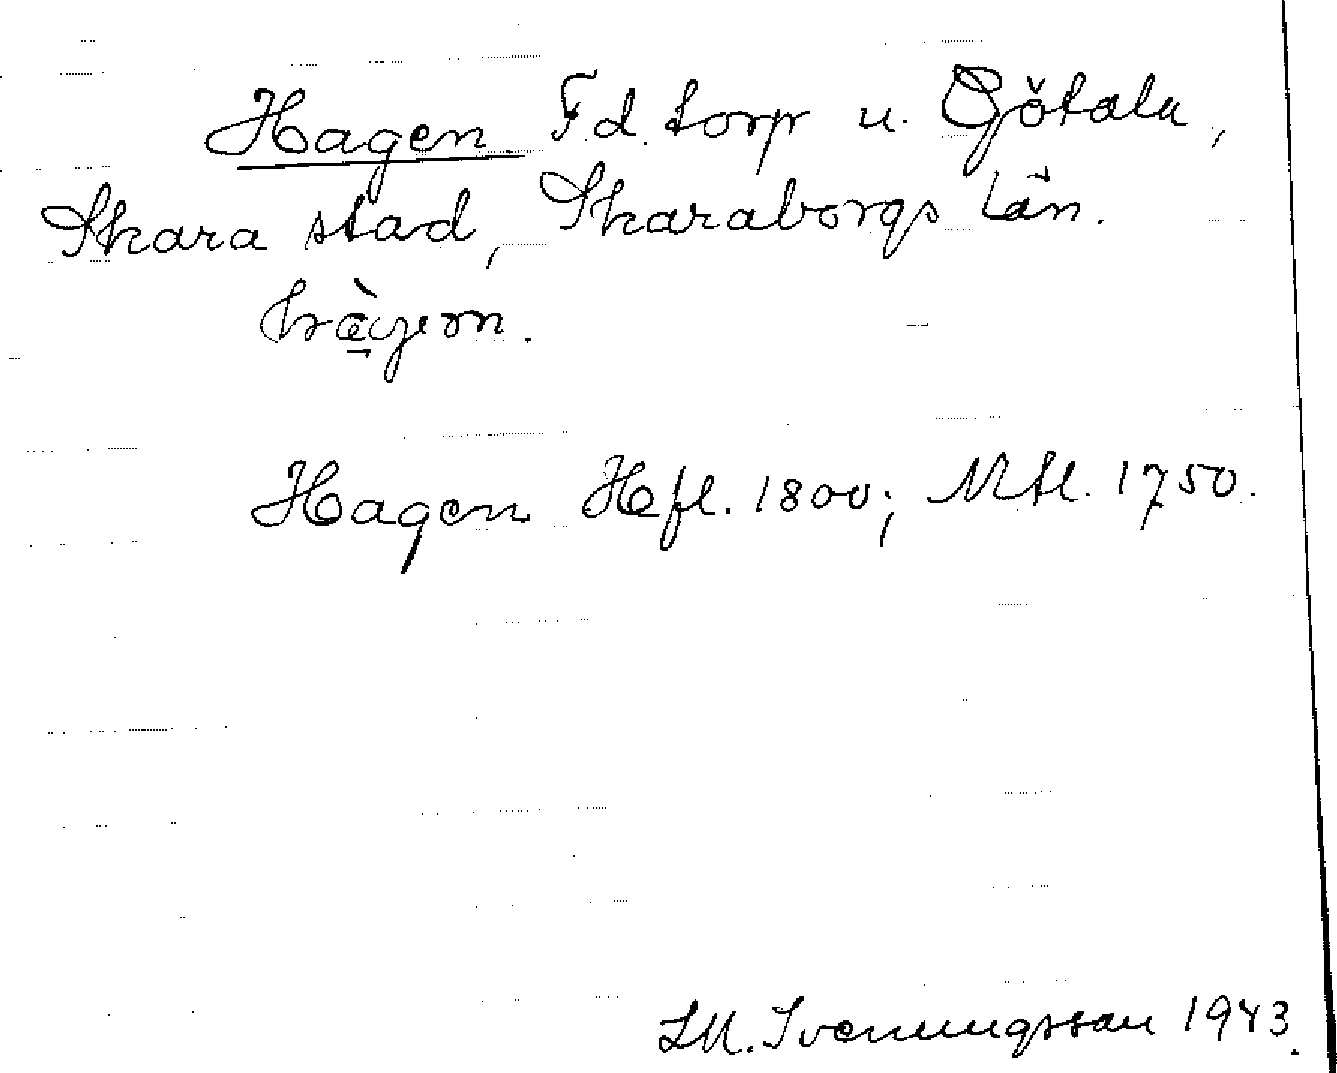 Hagen F.d. torp u. Götala,
Skara stad, Skaraborgs län.
Hagen Hfl. 1800; Mtl. 1750.
LM. Svenungsson 1943.